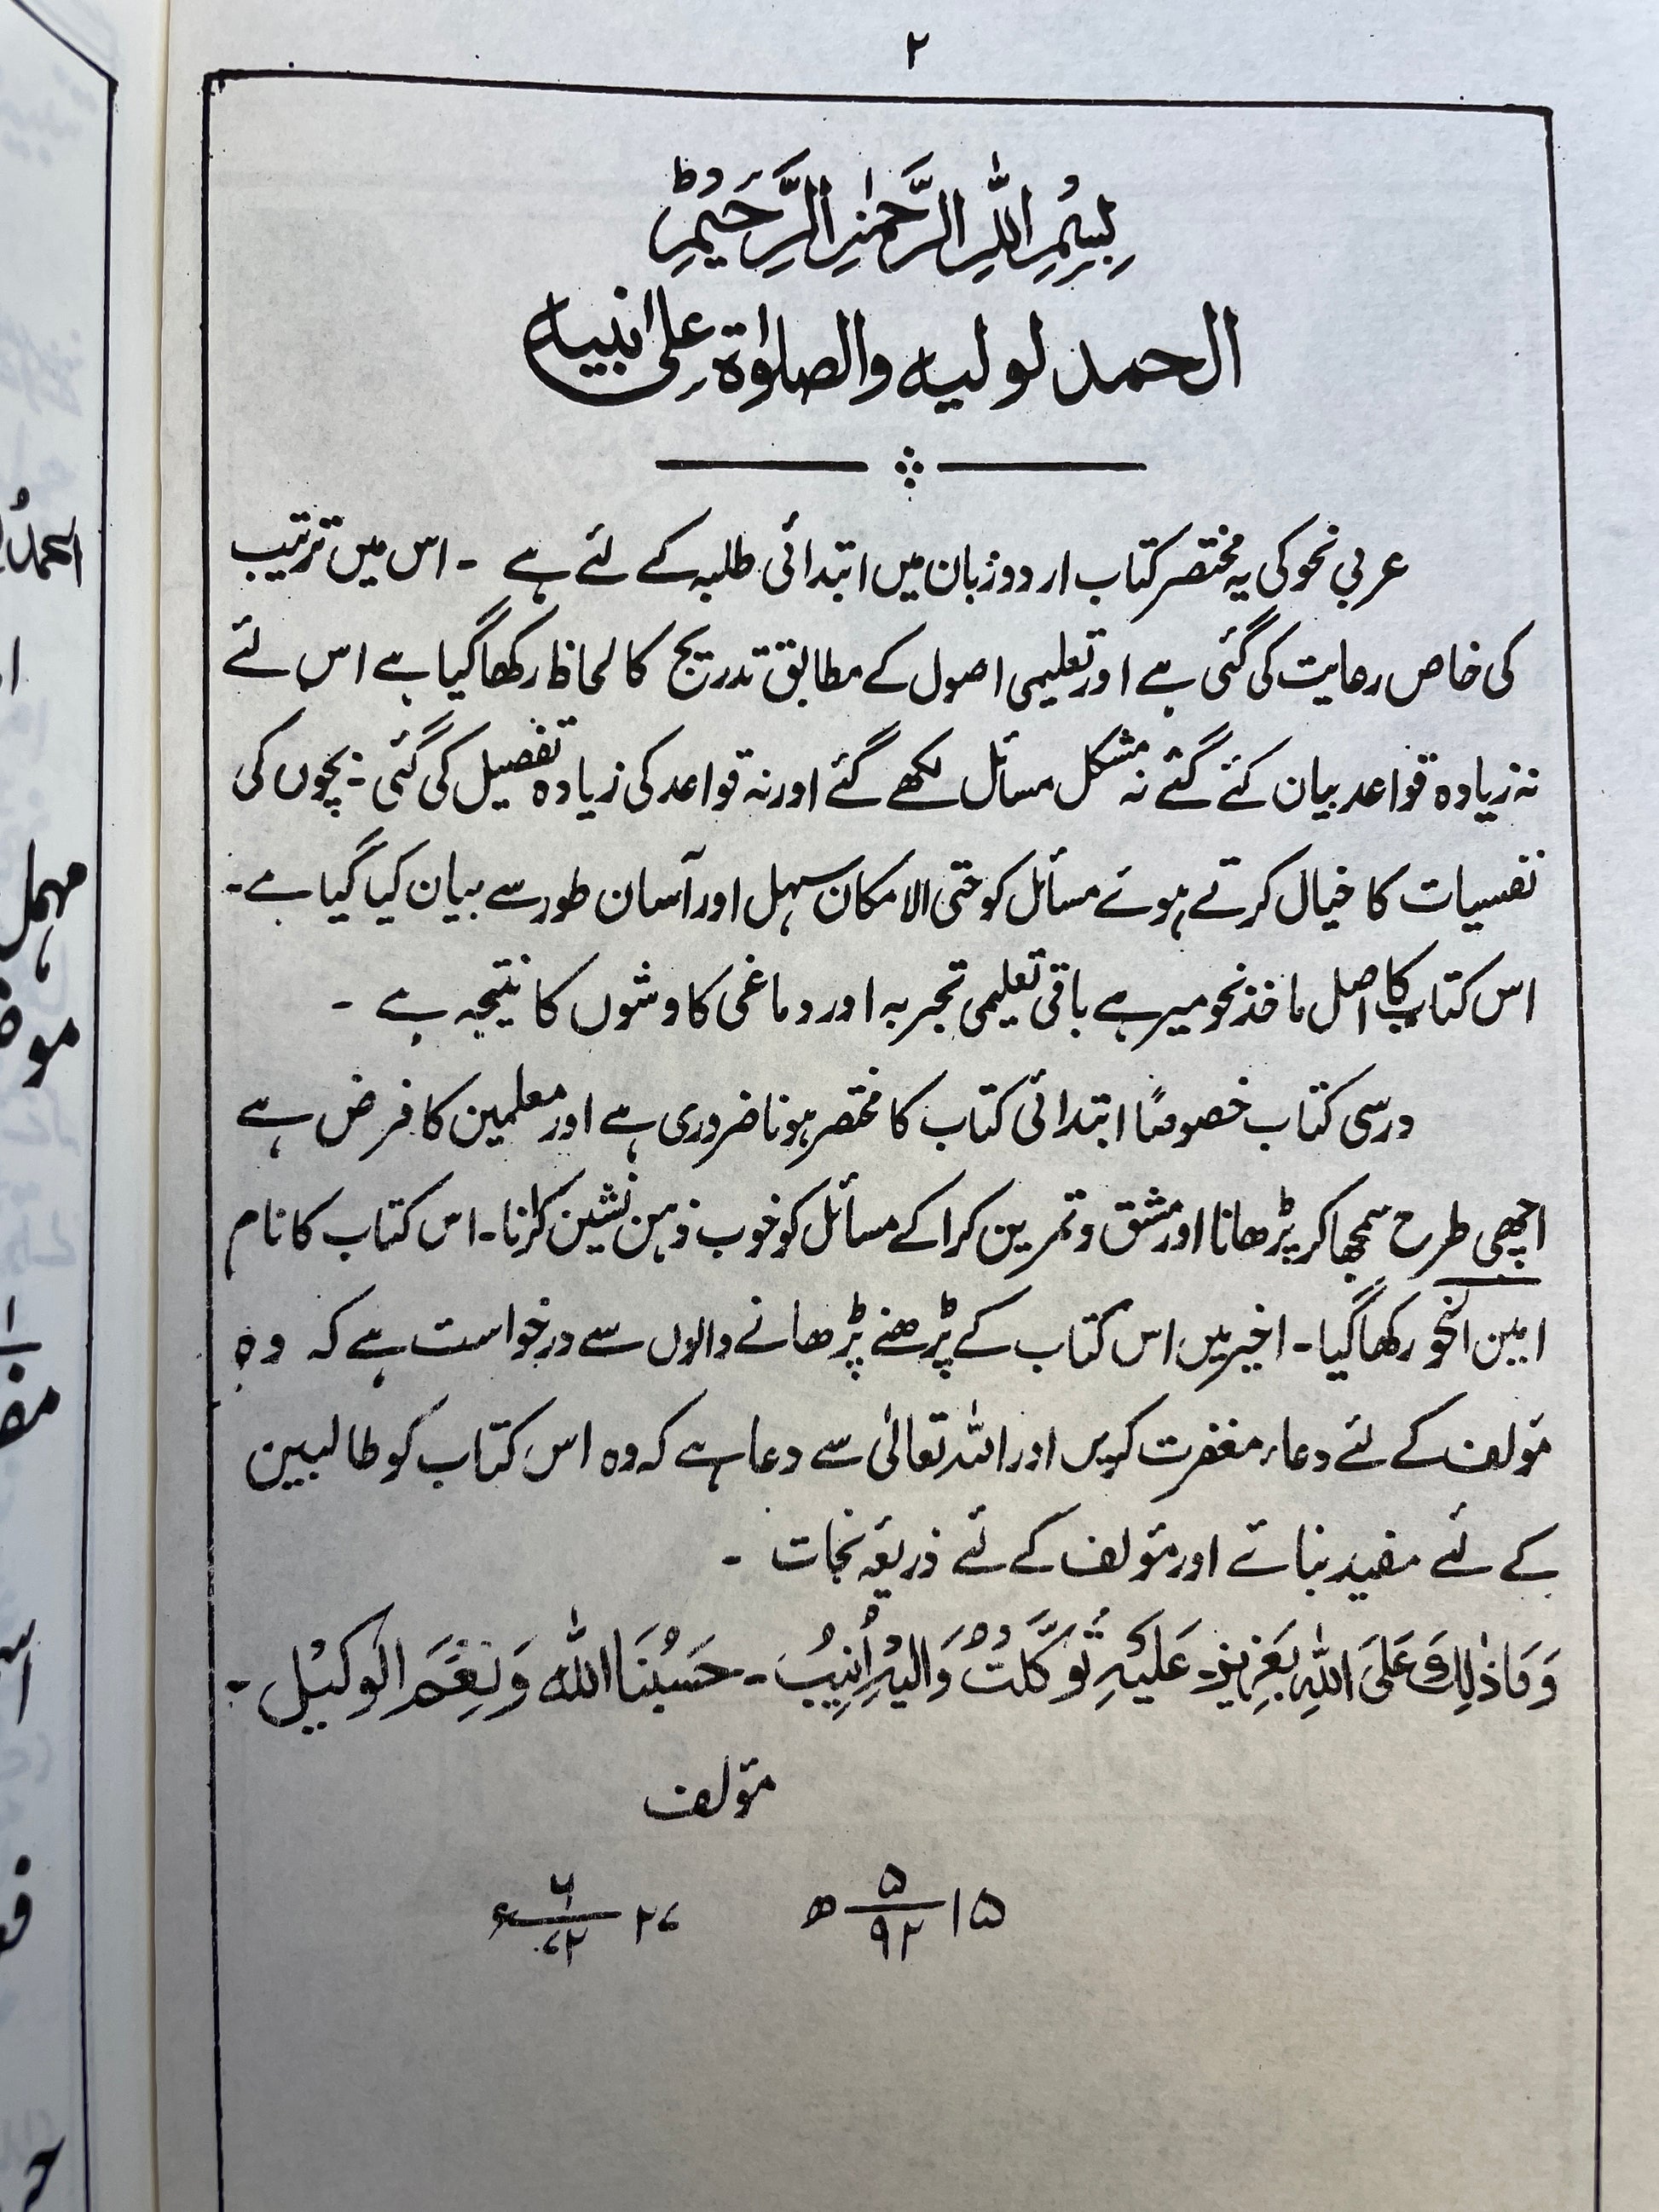 ۲
بِسْمِ اللّٰهِ الرَّحْمٰنِ الرَّحِيْمِ ط
الحمد لوليه والصلوٰة على نبيه
عربی نحو کی یہ مختصر کتاب اردو زبان میں ابتدائی طلبہ کے لئے ہے - اس میں ترتیب
کی خاص رعایت کی گئی ہے اور تعلیمی اصول کے مطابق تدریج کا لحاظ رکھا گیا ہے اس لئے
نہ زیادہ قواعد بیان کئے گئے نہ مشکل مسائل لکھے گئے اور نہ قواعد کی زیادہ تفصیل کی گئی - بچوں کی
نفسیات کا خیال کرتے ہوئے مسائل کو حتی الامکان سہل اور آسان طور سے بیان کیا گیا ہے -
اس کتاب کا اصل ماخذ نحومیر ہے باقی تعلیمی تجربہ اور دماغی کاوشوں کا نتیجہ ہے -
درسی کتاب خصوصًا ابتدائی کتاب کا مختصر ہونا ضروری ہے اور معلمین کا فرض ہے
اچھی طرح سمجھا کر پڑھانا اور مشق و تمرین کرا کے مسائل کو خوب ذہن نشین کرانا - اس کتاب کا نام
امین النحو رکھا گیا - اخیر میں اس کتاب کے پڑھنے پڑھانے والوں سے درخواست ہے کہ وہ
مؤلف کے لئے دعاء مغفرت کریں اور اللہ تعالیٰ سے دعا ہے کہ وہ اس کتاب کو طالبین
کے لئے مفید بنائے اور مؤلف کے لئے ذریعۂ نجات -
وَمَا ذٰلِكَ عَلَى اللّٰهِ بِعَزِيْزٍ - عَلَيْهِ تَوَكَّلْتُ وَاِلَيْهِ اُنِيْبُ - حَسْبُنَا اللّٰه وَنِعْمَ الْوَكِيْل -
مؤلف
۱۵ ۵/۹۲ ھ ۲۷ ۶/۷۲ ء
الحمدُ
مہمل